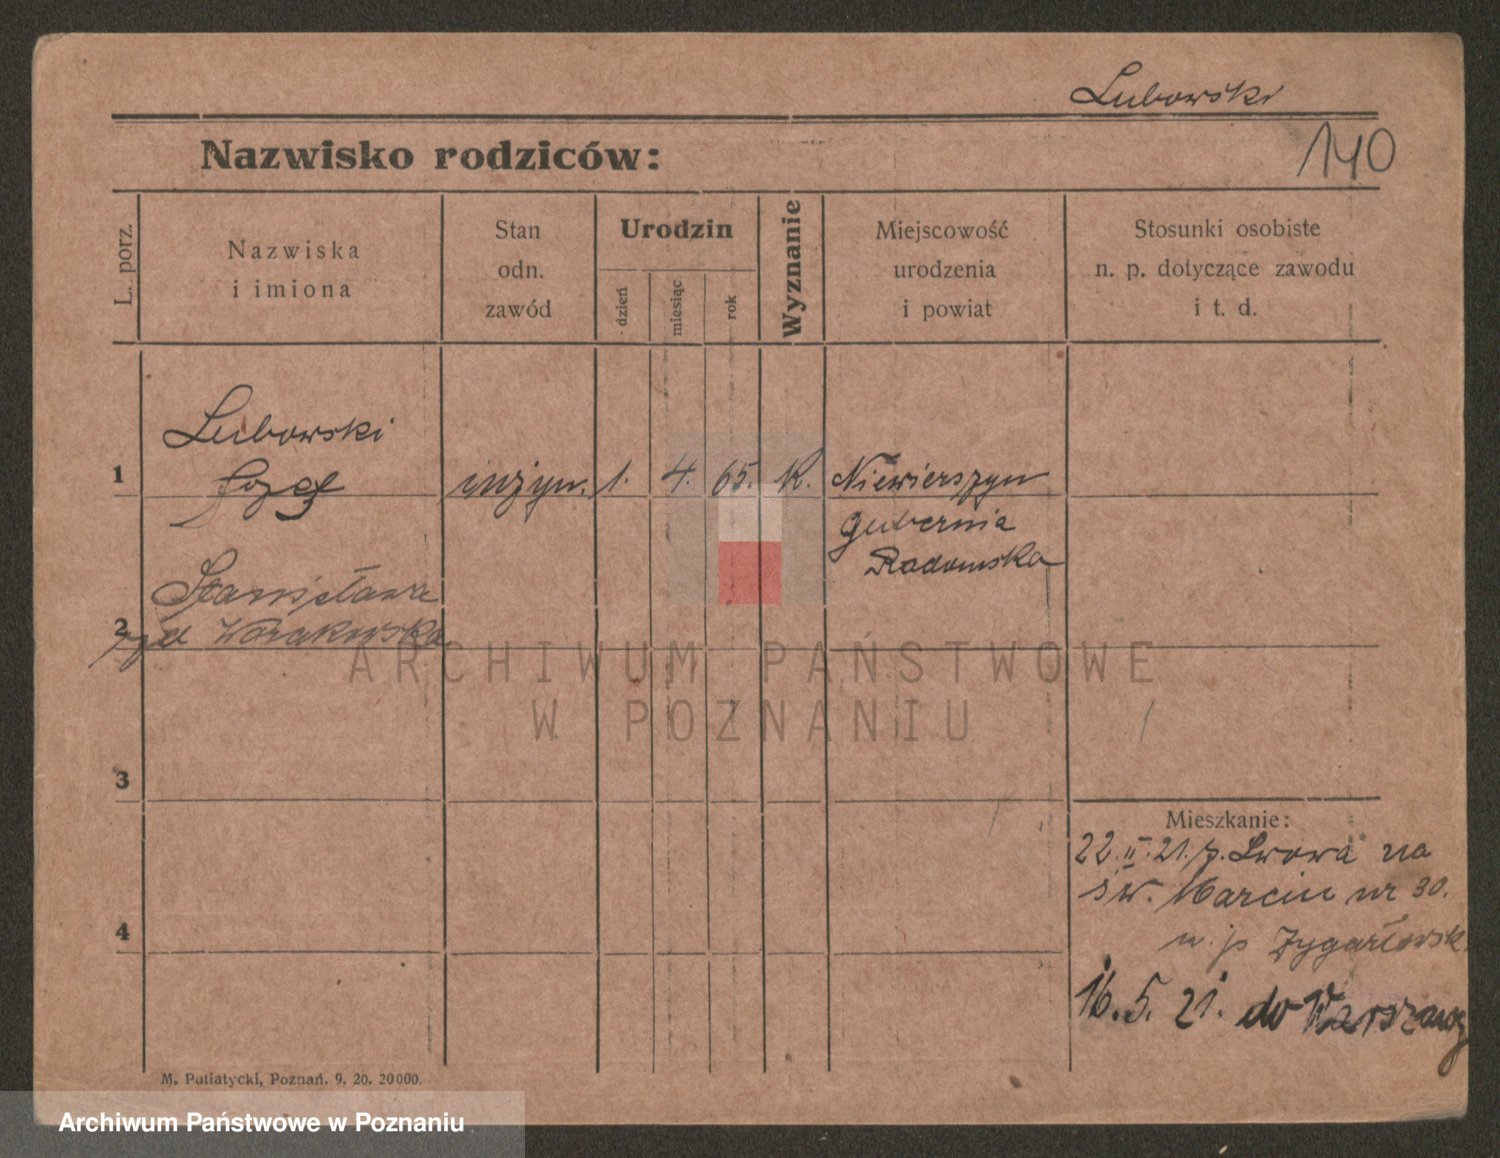 Lubowski
140
Nazwisko rodziców:
L. porz.
Nazwiska
i imiona
Stan
odn.
zawód
Urodzin
dzień
miesiąc
rok
Wyznanie
Miejscowość
urodzenia
i powiat
Stosunki osobiste
n. p. dotyczące zawodu
i t. d.
1
Lubowski
Jozef
inżyn. 1. 4. 65. K. Niewierszyn
gubernia
Radomska
Stanisława
2
Worakowska
3
Mieszkanie:
22.II.21. z. Lwowa na
św. Marcin nr 30.
4
16. 5. 21. do Warszawy
M. Putiatycki, Poznań. 9. 20. 20000.
ARCHIWUM PAŃSTWOWE
W POZNANIU
Archiwum Państwowe w Poznaniu